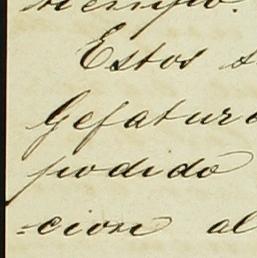 tiempo.
Estos
Gefatura
podido
=cion al